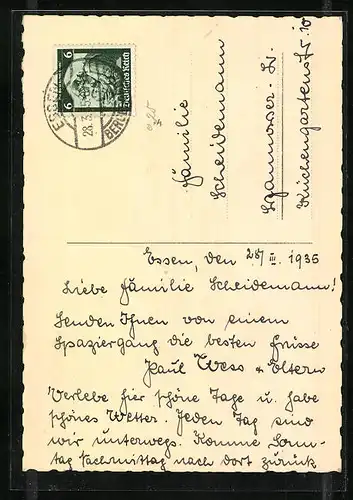 6 Deutsches Reich 6
ESSEN
28.3.
Familie
Scheidemann
Hannover-Li.
Küchengartenstr. 10
Essen, den 28/III. 1936
Liebe Familie Scheidemann!
Senden Ihnen von einem
Spaziergang die besten Grüsse
Paul Wess u. Eltern
Verlebe hier schöne Tage u. habe
schönes Wetter. Jeden Tag sind
wir unterwegs. Komme Sonn-
tag Nachmittag nach dort zurück